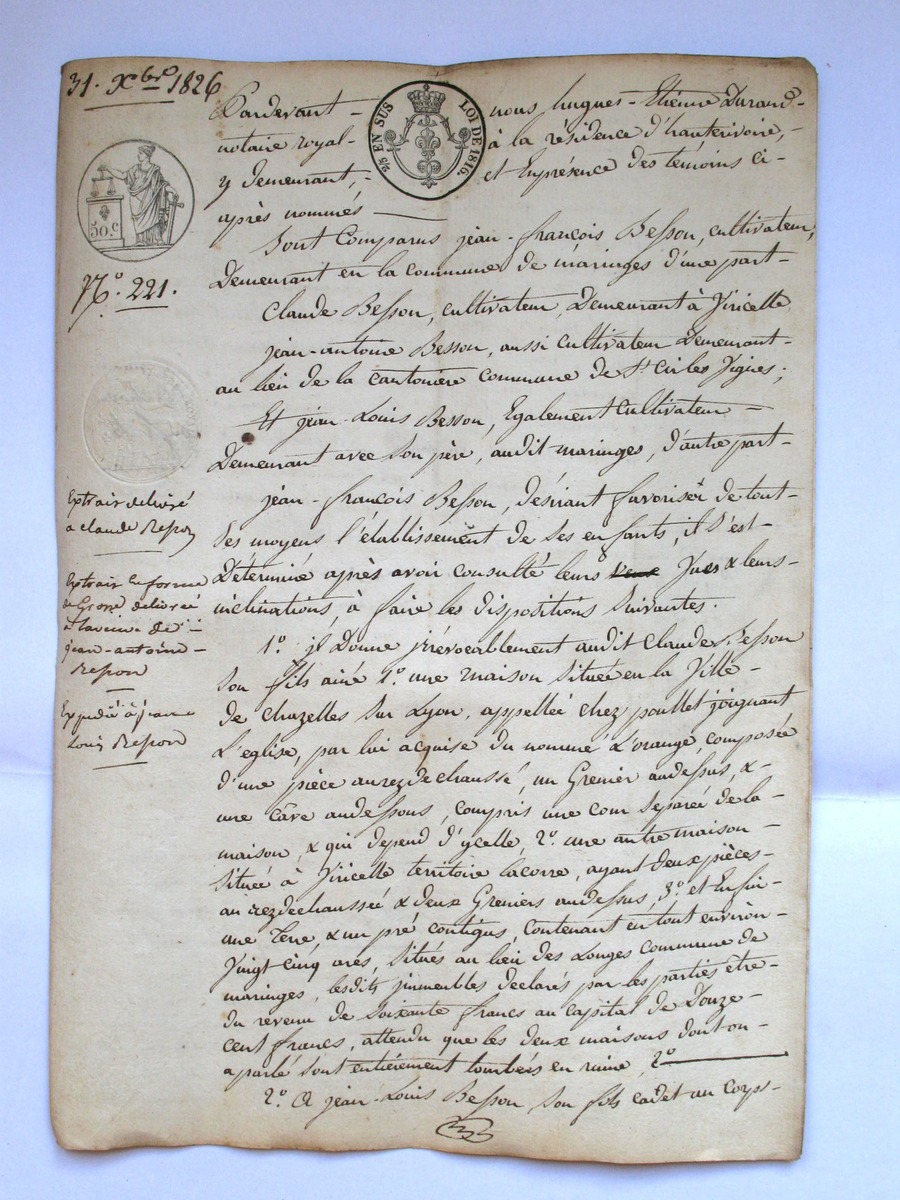 31. Xbre 1826
2/5 EN SUS LOI DE 1816.
50.c
N.o 221.
Pardevant - nous hugues-Etienne Durand-
notaire royal- à la résidence d'hauterivoire,-
y demeurant,- et En présence des temoins ci-
après nommés
Sont Comparus jean-françois Besson, cultivateur,
Demeurant en la commune de maringes d'une part-
Claude Besson, cultivateur, Demeurant à Viricelle,
jean-antoine Besson, aussi cultivateur Demeurant-
au lieu de la cantoniere commune de St. Cir les Vignes;
Et jean-Louis Besson, Egalement Cultivateur -
Demeurant avec Son père, audit maringes, d'autre part-
jean-françois Besson, désirant favoriser de tout-
Ses moyens l'établissement de ses enfants, il s'est-
Déterminé après avoir consulté leurs Vues & leurs-
inclinations, à faire les dispositions Suivantes.
1.o jl Donne jrrévocablement audit Claude Besson
Son fils ainé 1.o une maison située en la Ville-
de chazelles sur Lyon, appellée chez poullet joignant
L'eglise, par lui acquise du nommé L'orange, composée
d'une pièce au rez de chaussé, un Grenier audessus, &-
une Câve audessous, compris une cour Séparée de la-
maison, & qui depend d'ycelle, 2.o une autre maison-
Située à Viricelle territoire lacorre, ayant deux pièces-
au rezdechaussée & deux Greniers audessus, 3.o et Enfin-
une Terre, & un pré contigus, Contenant en tout environ-
Vingt Cinq ares, Situés au lieu des Longes Commune de
maringes, lesdits jmmeubles déclarés par les parties être-
du revenu de Soixante francs au capital de Douze-
cent francs, attendu que les deux maisons dont on-
a parlé sont entièrement tombées en ruine, 2.o
2.o A jean-Louis Besson Son fils cadet un Corps-
Extrait delivré
a claude Besson
Extrait En forme
de Grosse delivrée
a la veuve de
jean-antoine-
Besson
Expedié à jean
Louis Besson